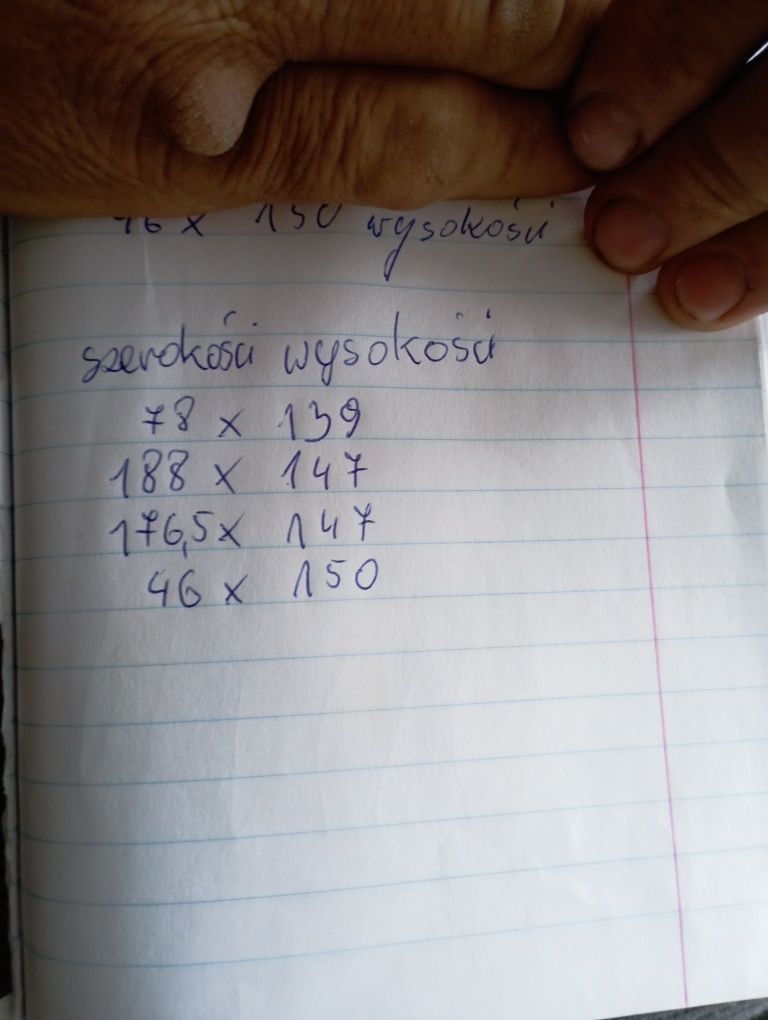 x 150 wysokości
szerokości wysokości
78 x 139
188 x 147
176,5 x 147
46 x 150